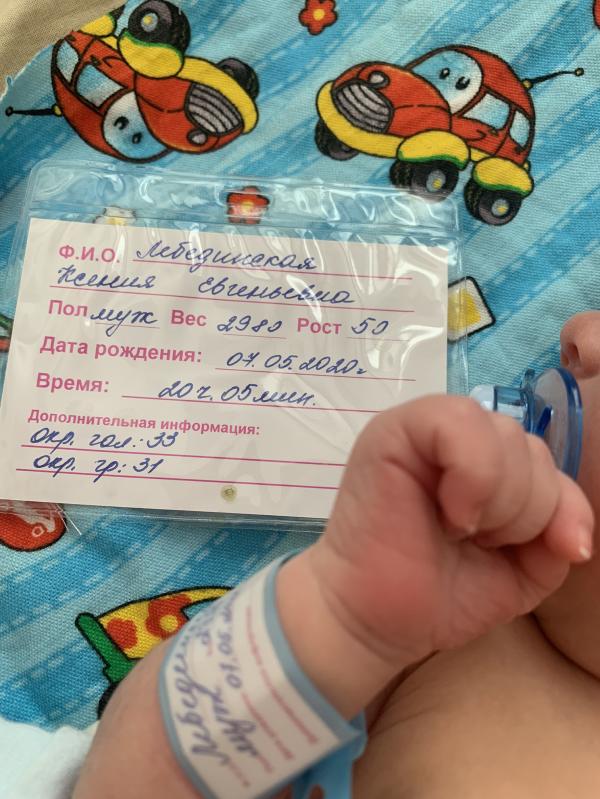 Ф.И.О. Лебединская
Ксения Евгеньевна
Пол муж Вес 2980 Рост 50
Дата рождения: 07.05.2020г
Время: 20 ч. 05 мин.
Дополнительная информация:
окр. гол.: 33
окр. гр.: 31
Лебедин
Муж 07.05.